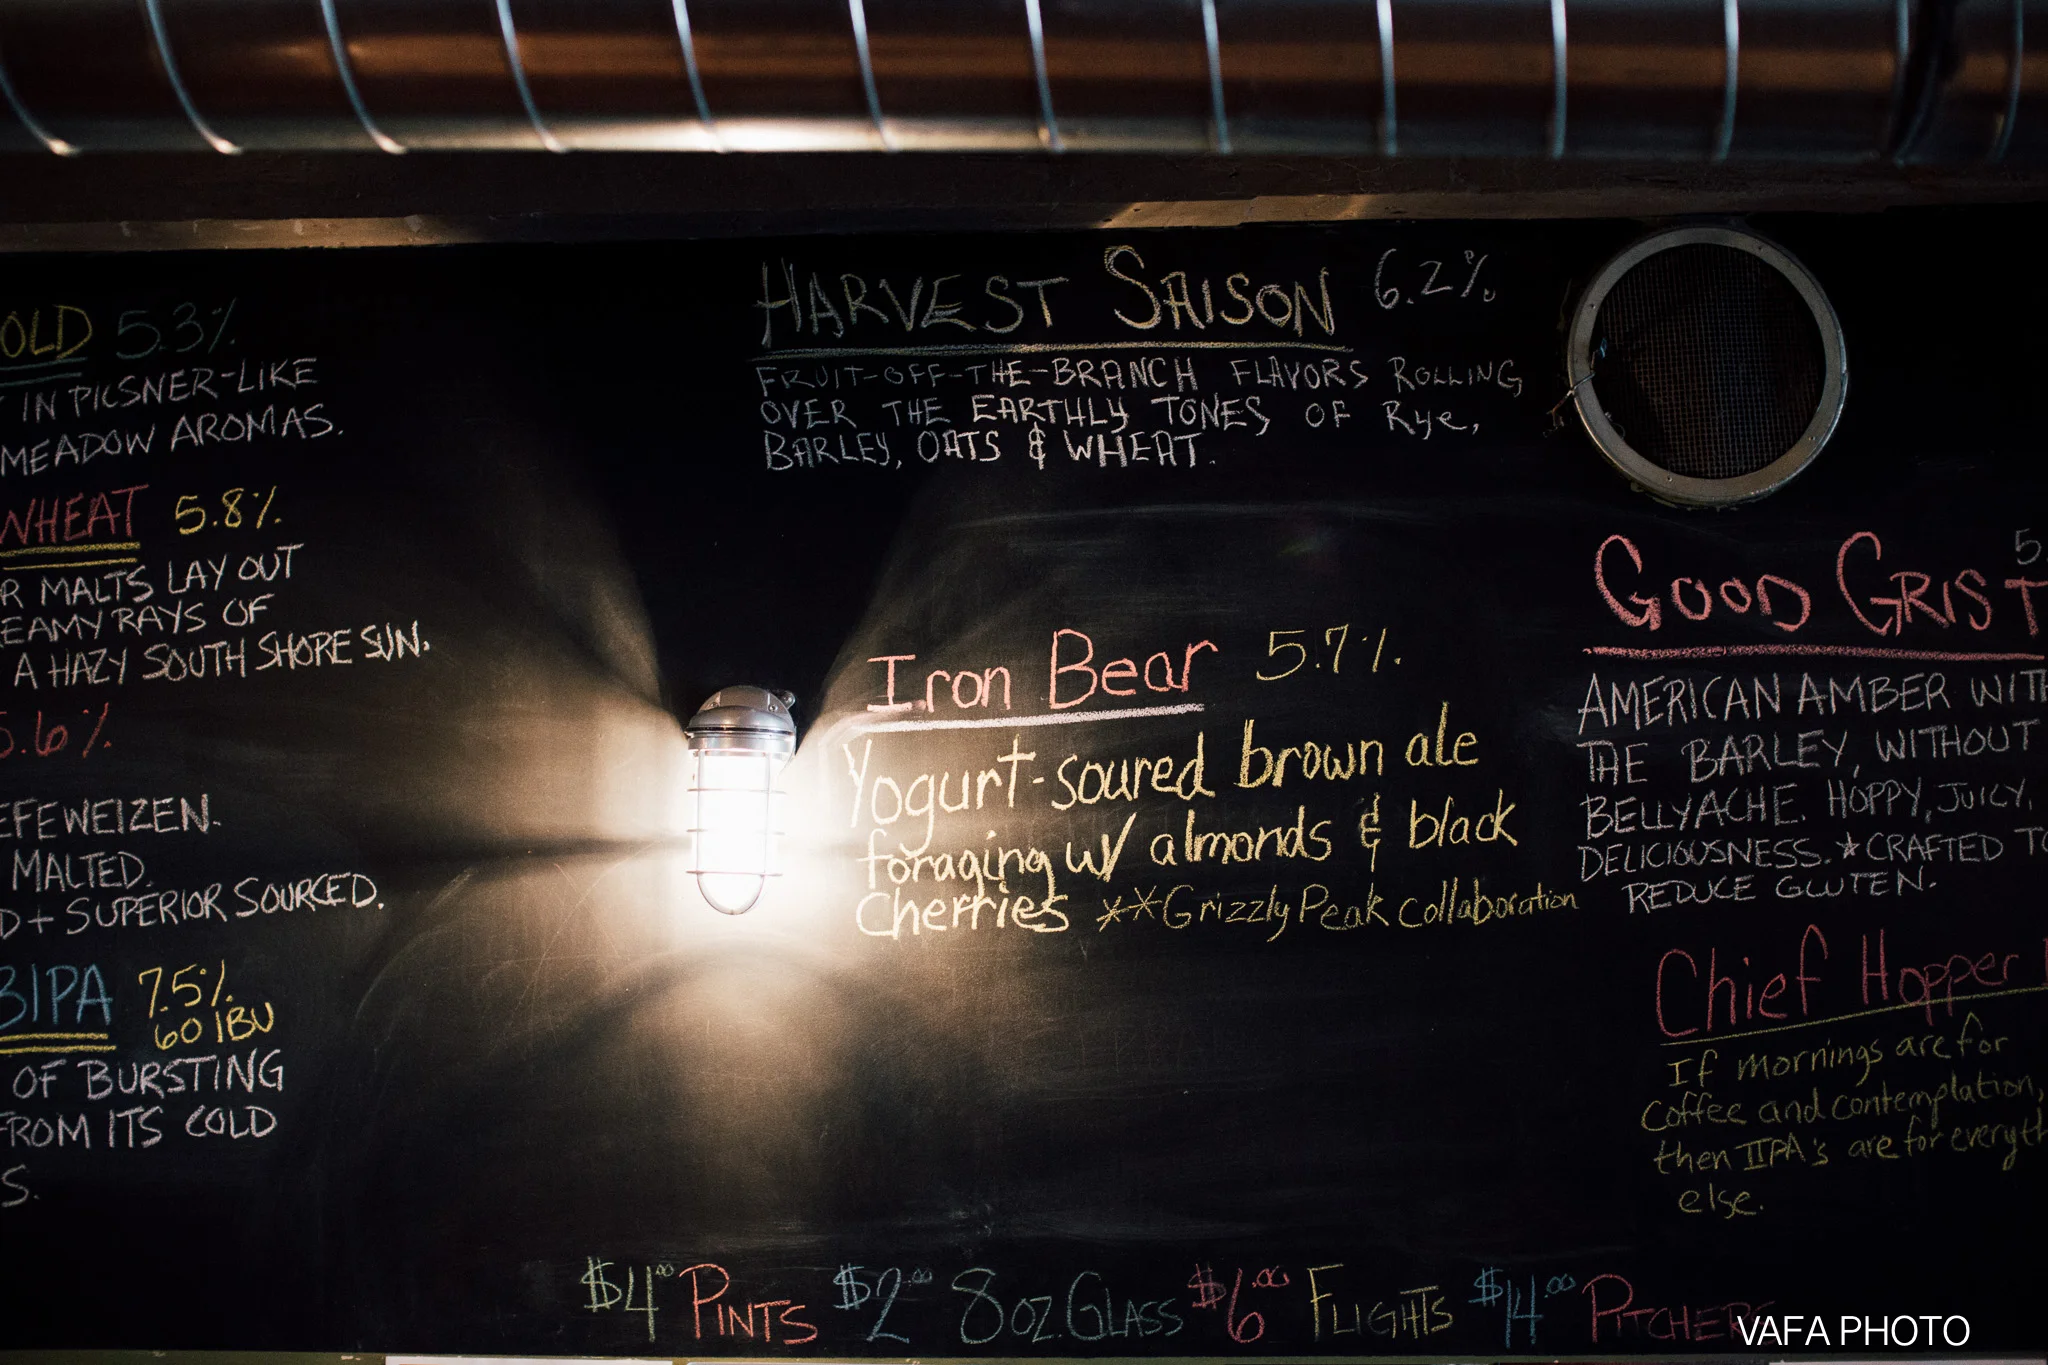 OLD 5.3%
IN PILSNER-LIKE
MEADOW AROMAS.
WHEAT 5.8%
R MALTS LAY OUT
EAMY RAYS OF
A HAZY SOUTH SHORE SUN.
5.6%
EFEWEIZEN.
MALTED.
D + SUPERIOR SOURCED.
BIPA 7.5%
60 IBU
OF BURSTING
FROM ITS COLD
S.
HARVEST SAISON 6.2%
FRUIT-OFF-THE-BRANCH FLAVORS ROLLING
OVER THE EARTHLY TONES OF Rye,
BARLEY, OATS & WHEAT.
Iron Bear 5.7%
Yogurt-soured brown ale
foraging w/ almonds & black
Cherries **Grizzly Peak collaboration
GOOD GRIST 5.
AMERICAN AMBER WITH
THE BARLEY, WITHOUT
BELLYACHE. HOPPY, JUICY,
DELICIOUSNESS. *CRAFTED TO
REDUCE GLUTEN.
Chief Hopper
If mornings are for
Coffee and contemplation,
then IIPA's are for everyth
else.
$4.00 PINTS $2.00 8 OZ. GLASS $6.00 FLIGHTS $14.00 PITCHERS
VAFA PHOTO